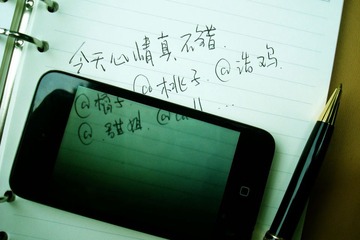 今天心情真不错.
@桃子. @浩鸡.
@橘子.
@甜姐.